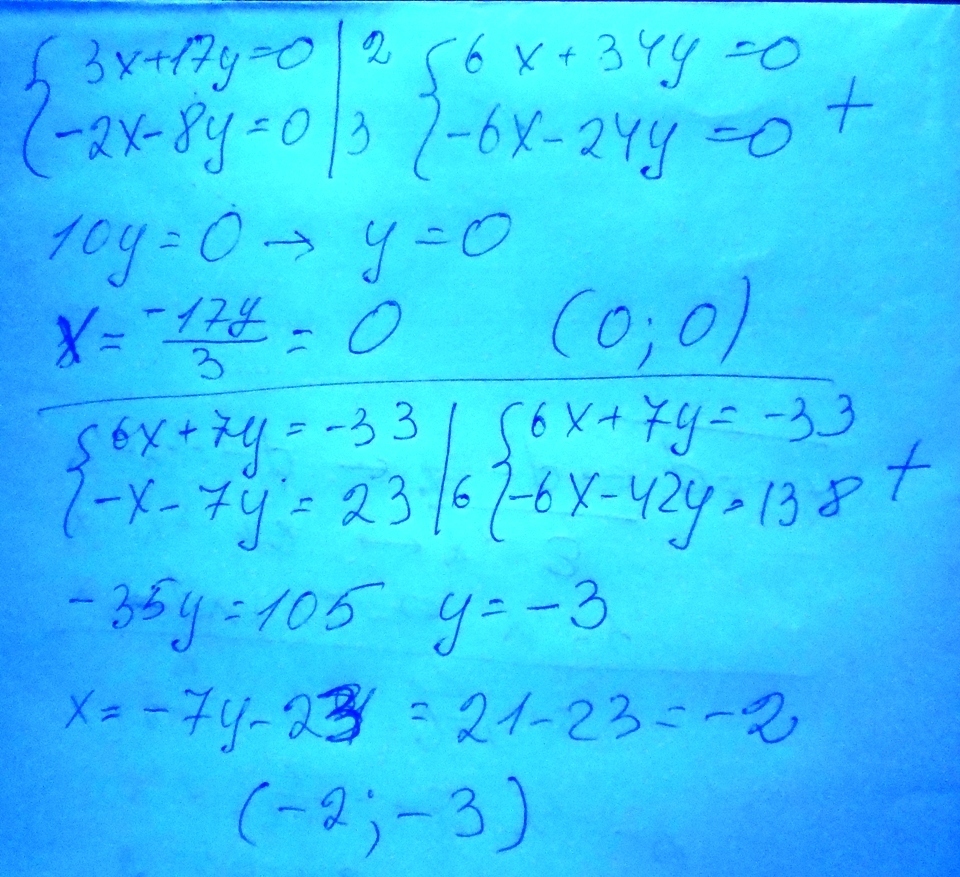 {3x+17y=0 | 2 {6x+34y=0
{-2x-8y=0 | 3 {-6x-24y=0 +
10y=0 → y=0
x= -17y/3 = 0 (0;0)
{6x+7y=-33 | {6x+7y=-33
{-x-7y=23 | 6 {-6x-42y=138 +
-35y=105 y=-3
x=-7y-23 = 21-23=-2
(-2;-3)